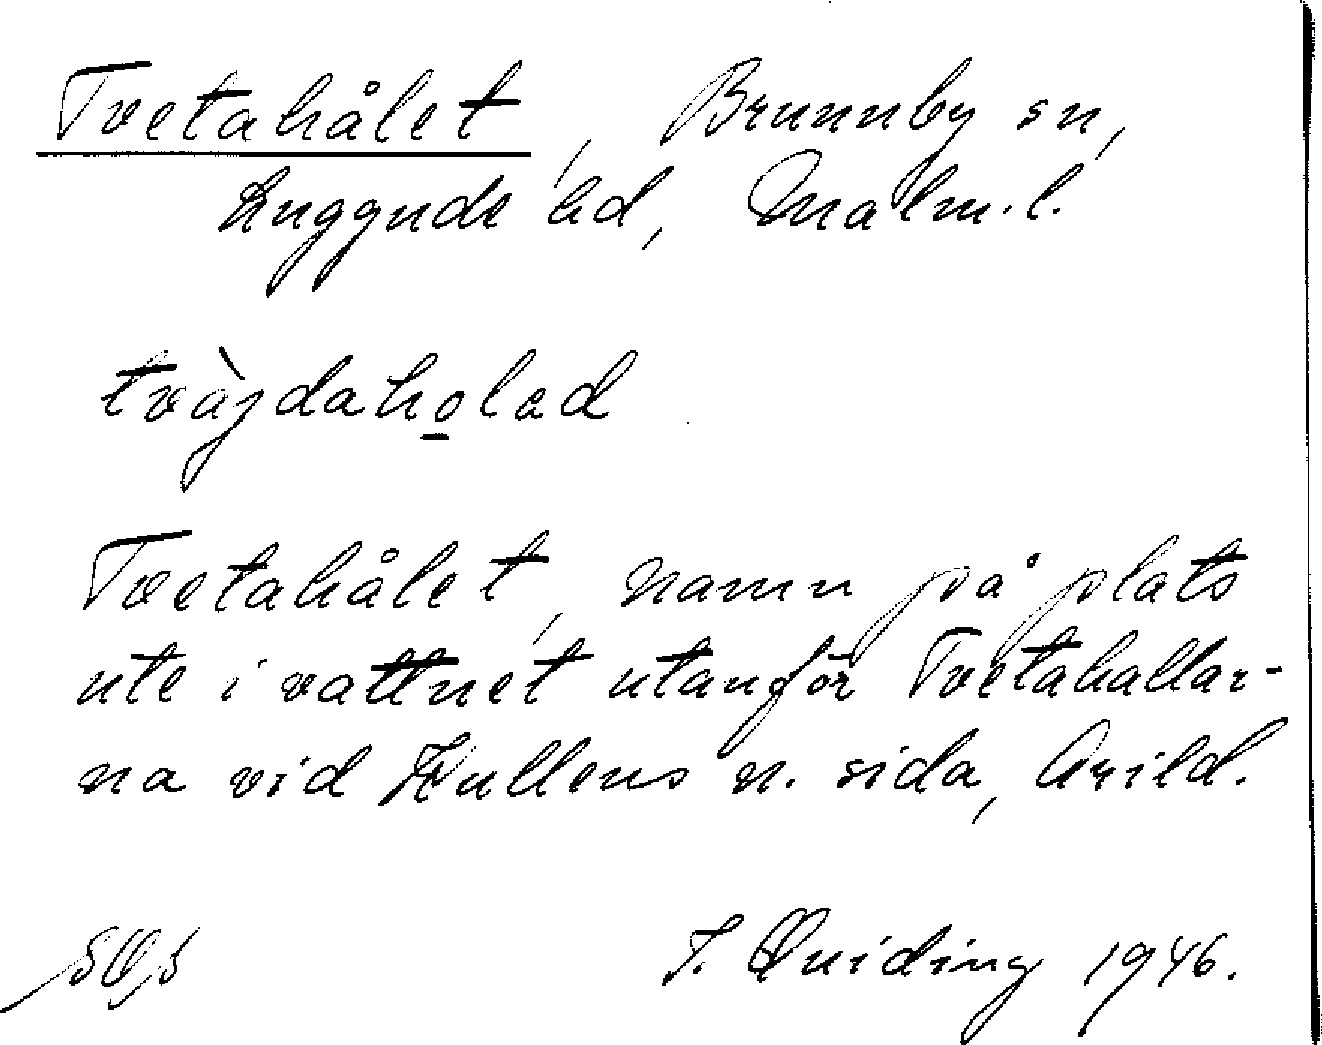 Tvetahålet, Brunnby sn,
Luggude hd, Malm. l.
tvàjdahola d
Tvetahålet, namn på plats
ute i vattnet utanför Tvetahallar-
na vid Kullens n. sida, Arild.
T. Quiding 1946.